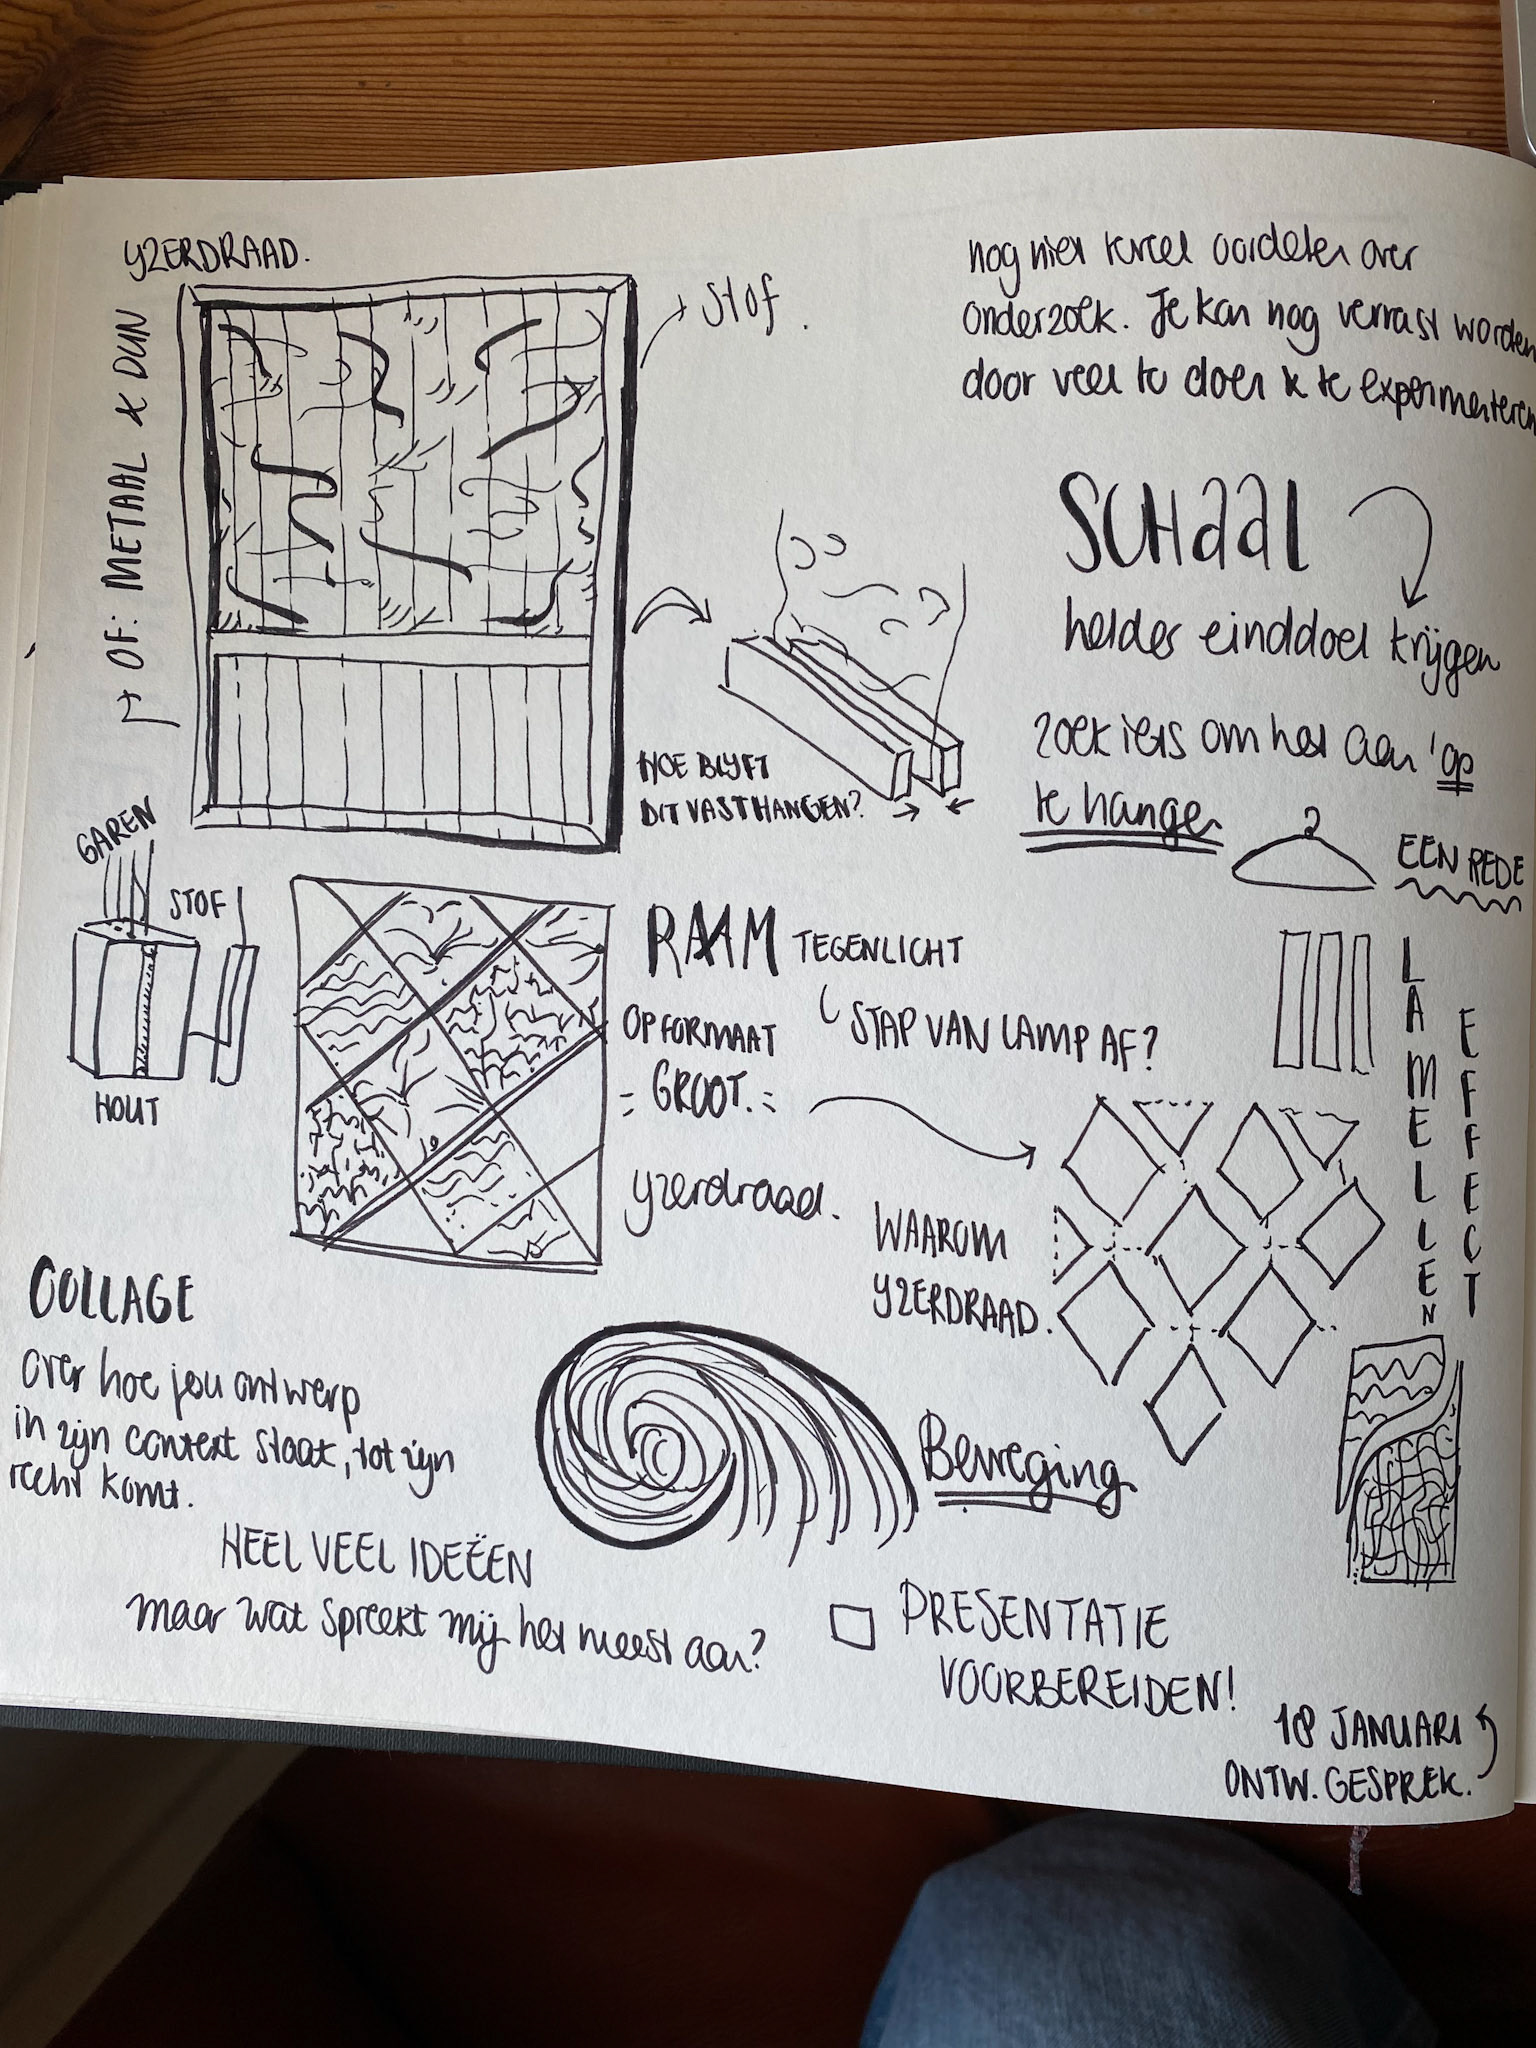 YZERDRAAD.
OF: METAAL & DUN
+ Stof.
nog niet teveel oordelen over
onderzoek. Je kan nog verrast worden
door veel te doen & te experimenteren
SCHaal
helder einddoel krijgen
zoek iets om het aan 'op
te hangen
EEN REDE
HOE BLYFT
DIT VASTHANGEN?
GAREN
STOF
HOUT
RAAM TEGENLICHT
STAP VAN LAMP AF?
OP FORMAAT
= GROOT. =
yzerdraad.
WAAROM
YZERDRAAD.
LAMELLEN
EFFECT
COLLAGE
over hoe jou ontwerp
in zijn context staat, tot zijn
recht komt.
Beweging
HEEL VEEL IDEËEN
maar wat spreekt mij het meest aan?
PRESENTATIE
VOORBEREIDEN!
18 JANUARI
ONTW. GESPREK.